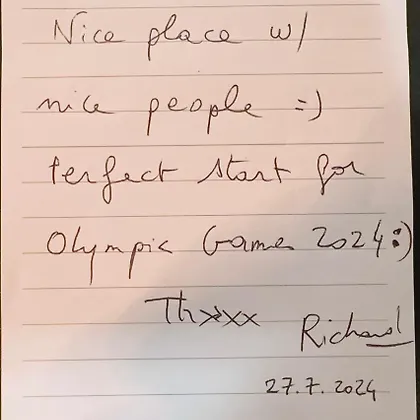 Nice place w/
nice people =)
Perfect start for
Olympic Games 2024:)
Thxxx
Richard
27.7.2024